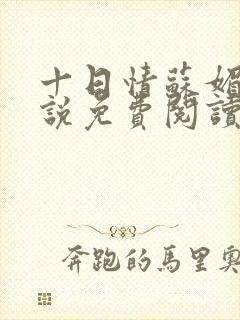 十日情蘇媚
說免費閱讀
奔跑的馬里奧